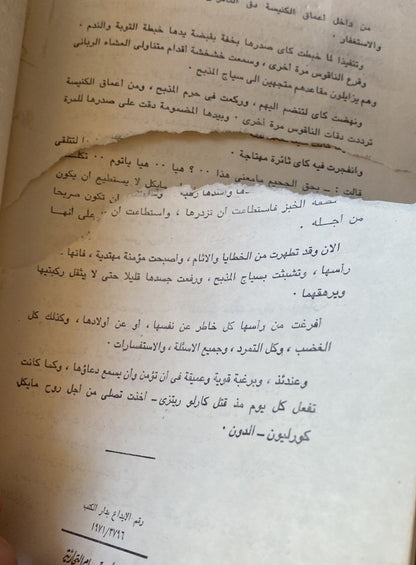 من داخل أعماق الكنيسة دق
والاستغفار .
وتنفيذا لما خبطت كاى صدرها بخفة بقبضة يدها خبطة التوبة والندم ،
وقرع الناقوس مرة أخرى ، وسمعت خشخشة أقدام متناولى العشاء الربانى
وهم يزايلون مقاعدهم متجهين الى سياج المذبح .
ونهضت كاى لتنضم اليهم ، وركعت فى حرم المذبح ، ومن أعماق الكنيسة
ترددت دقات الناقوس مرة أخرى . وبيدها المضمومة دقت على صدرها للمرة
وانفجرت فيه كاى ثائرة مهتاجة .
قالت : ـ بحق الجحيم مامعنى هذا ٠٠ ؟ هيا ٠٠ هيا ياتوم ٠٠
مايكل لا يستطيع ان يكون
الخبز فاستطاعت ان تزدرها ، واستطاعت ان ٠٠ على انهـا
من أجـله .
الان وقد تطهرت من الخطايا والاثام ، واصبحت مؤمنة مهتدية ، فانها
رأسها ، وتشبثت بسياج المذبح ، ورفعت جسدها قليلا حتى لا يثقل ركبتيها
ويرهقهما .
أفرغت من رأسها كل خاطر عن نفسها ، أو عن أولادها ، وكذلك كل
الغضب ، وكل التمرد ، وجميع الاسئلة ، والاستفسارات .
وعندئذ ، وبرغبة قوية وعميقة فى ان تؤمن وان يسمع دعاؤها ، وكما كانت
تفعل كل يوم مذ قتل كارلو ريتزى ـ أخذت تصلى من أجل روح مايكل
كورليون ـ الدون .
رقم الايداع بدار الكتب
١٩٧١/٣٧٩٦